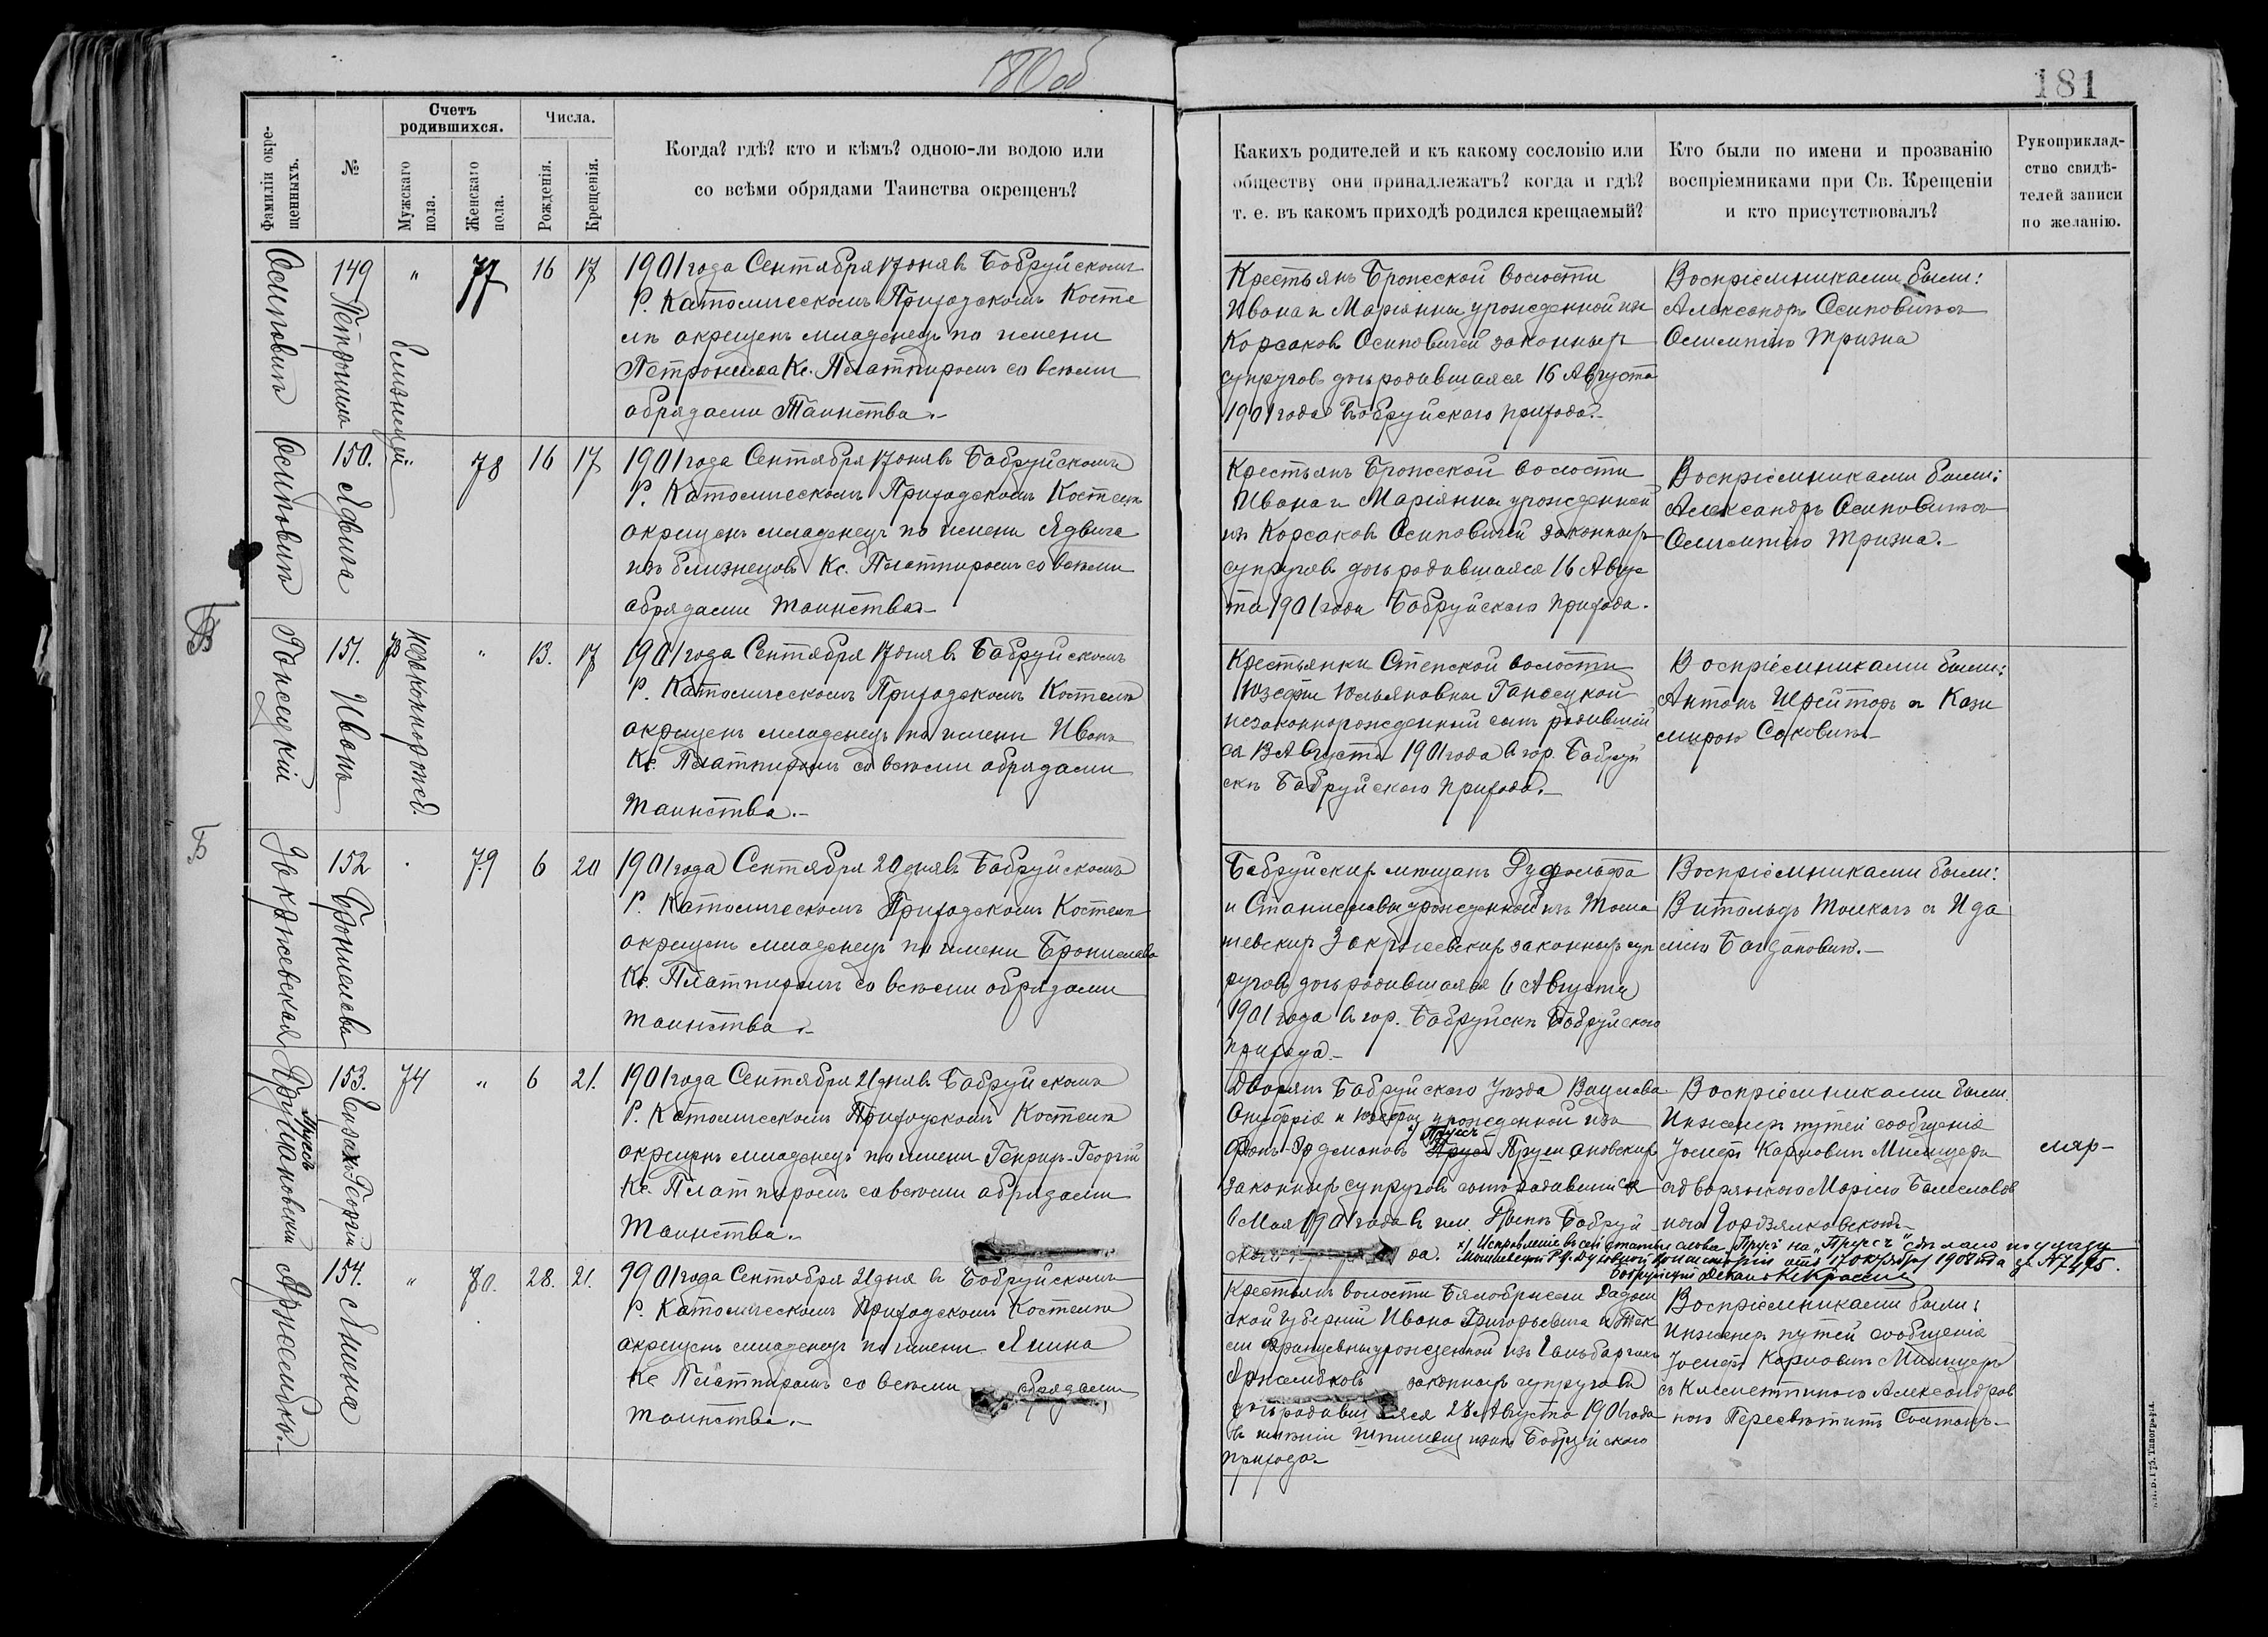 180 об
181
Фамиліи окре-
щенныхъ.
№
Счетъ
родившихся.
Мужскаго
пола.
Женскаго
пола.
Числа.
Рожденія.
Крещенія.
Когда? гдѣ? кто и кѣмъ? одною-ли водою или
со всѣми обрядами Таинства окрещенъ?
Какихъ родителей и къ какому сословію или
обществу они принадлежатъ? когда и гдѣ?
т. е. въ какомъ приходѣ родился крещаемый?
Кто были по имени и прозванію
воспріемниками при Св. Крещеніи
и кто присутствовалъ?
Рукоприклад-
ство свидѣ-
телей записи
по желанію.
Осиповичъ
149
Петронила
близнецы
"
77
16
17
1901 года Сентября 17 дня въ Бобруйскомъ
Р. Католическомъ Приходскомъ Косте
лѣ окрещенъ младенецъ по имени
Петронила Кс. Платпиромъ со всѣми
обрядами Таинства.-
Крестьянъ Брожской волости
Ивана и Маріанны урожденной изъ
Корсаковъ Осиповичей законныхъ
супруговъ дочь родившаяся 16 Августа
1901 года Бобруйскаго прихода.-
Воспріемниками были:
Александръ Осиповичъ съ
Осиповичъ
150.
Ядвига
"
78
16
17
1901 года Сентября 17 дня въ Бобруйскомъ
Р. Католическомъ Приходскомъ Костелѣ
окрещенъ младенецъ по имени Ядвига
изъ близнецовъ Кс. Платпиромъ со всѣми
обрядами таинства.-
Крестьянъ Брожской волости
Ивана и Маріанны урожденной
изъ Корсаковъ Осиповичей законныхъ
супруговъ дочь родившаяся 16 Авгус
та 1901 года Бобруйскаго прихода.
Воспріемниками были:
Александръ Осиповичъ съ
151.
Иванъ
73
незаконнорожд.
"
13.
17
1901 года Сентября 17 дня въ Бобруйскомъ
Р. Католическомъ Приходскомъ Костелѣ
окрещенъ младенецъ по имени Иванъ
Кс. Платпиромъ со всѣми обрядами
таинства.-
Крестьянки Степской волости
незаконнорожденный сынъ родившій
ся 13 Августа 1901 года въ гор. Бобруй
скѣ Бобруйскаго прихода.-
Воспріемниками были:
Антонъ Шрейторъ съ Кази
мирою Саковичъ.-
В
Б
152
Бронислава
79
6
20
1901 года Сентября 20 дня въ Бобруйскомъ
Р. Католическомъ Приходскомъ Костелѣ
окрещенъ младенецъ по имени Бронислава
Кс. Платпиромъ со всѣми обрядами
таинства.-
Бобруйскихъ мѣщанъ Рудольфа
и Станиславы урожденной изъ Тома
шевскихъ Закржевскихъ законныхъ суп
руговъ дочь родившаяся 6 Августа
1901 года въ гор. Бобруйскѣ Бобруйскаго
прихода.-
Воспріемниками были:
Богдановичъ.-
Прусъ
Прушановскій
153.
Генрихъ Георгій
74
"
6
21.
1901 года Сентября 21 дня въ Бобруйскомъ
Р. Католическомъ Приходскомъ Костелѣ
окрещенъ младенецъ по имени Генрихъ-Георгій
Кс. Платпиромъ со всѣми обрядами
Таинства.-
Дворянъ Бобруйскаго Уѣзда Вацлава
Онуфрія и Юзефы урожденной изъ
Прусъ
Прушановскихъ
законныхъ супруговъ сынъ родившійся
6 Мая 1901 года въ им.
Воспріемниками были
Инженеръ путей сообщенія
Іосифъ Карловичъ
съ дворянкою Маріею Болеславов
ною
х) Исправленіе въ сей статьѣ слова "Прусъ" на "Прусъ" сдѣлано по указу
Могилевской Р. К. Духовной Консисторіи отъ 17 Октября 1908 года за № 7495.
Бобруйскій Деканъ
154.
Янина
"
80.
28.
21.
1901 года Сентября 21 дня въ Бобруйскомъ
Р. Католическомъ Приходскомъ Костелѣ
окрещенъ младенецъ по имени Янина
Кс Платпиромъ со всѣми обрядами
таинства.-
Крестьянъ волости Бялобржеги Радом
ской губерніи Ивана Григорьевича и Тек
ли Францевны урожденной изъ
законныхъ супруговъ
дочь родившаяся 28 Августа 1901 года
въ имѣніи Бобруйскаго
прихода-
Воспріемниками были:
Инженеръ путей сообщенія
Іосифъ Карловичъ
съ Клементиною Александров
ною